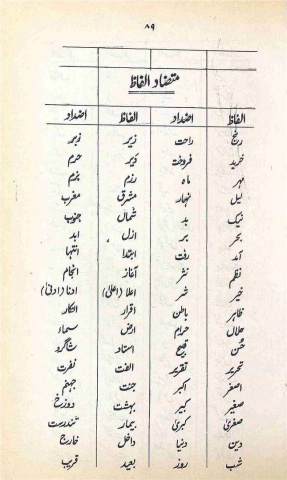 ۸۹
متضاد الفاظ
الفاظ اضداد الفاظ اضداد
رنج راحت زیر زبر
خرید فروخت دَیر حرم
مہر ماہ رزم بزم
لیل نہار مشرق مغرب
نیک بد شمال جنوب
بحر بر ازل ابد
آمد رفت ابتدا انتہا
نظم نثر آغاز انجام
خیر شر اعلا (اعلیٰ) ادنا (ادنیٰ)
ظاہر باطن اقرار انکار
حلال حرام ارض سماء
حُسن قبح استاد شاگرد
تحریر تقریر الفت نفرت
اصغر اکبر جنت جہنم
صغیر کبیر بہشت دوزخ
صغریٰ کبریٰ بیمار تندرست
دین دنیا داخل خارج
شب روز بعید قریب